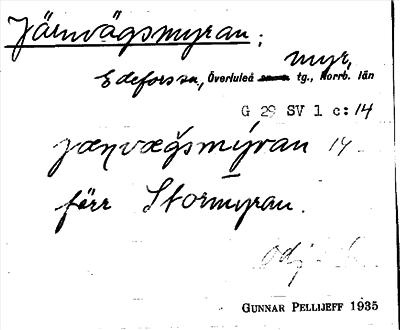 Järnvägsmyran;
myr,
Edeforsen, Överluleå tg., Norrb. län
G 29 SV 1 c:14
jæɳvægsmýran 14
förr Stormyran.
GUNNAR PELLIJEFF 1935